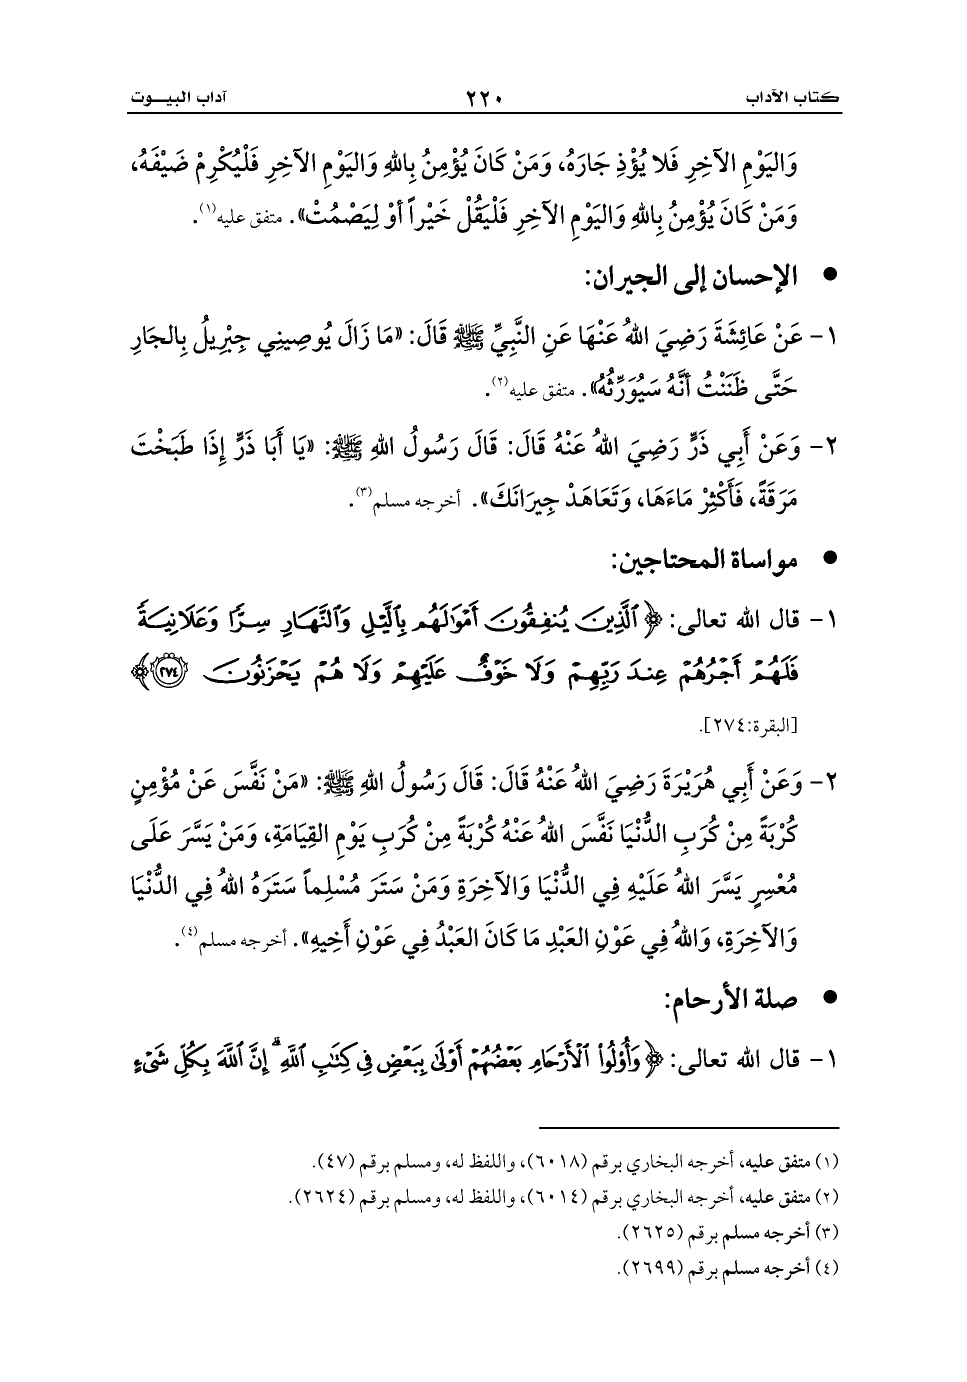 كتاب الآداب ٢٢٠ آداب البيـــوت
وَاليَوْمِ الآخِرِ فَلا يُؤْذِ جَارَهُ، وَمَنْ كَانَ يُؤْمِنُ بِاللهِ وَاليَوْمِ الآخِرِ فَلْيُكْرِمْ ضَيْفَهُ،
وَمَنْ كَانَ يُؤْمِنُ بِاللهِ وَاليَوْمِ الآخِرِ فَلْيَقُلْ خَيْراً أوْ لِيَصْمُتْ». متفق عليه(١).
● الإحسان إلى الجيران:
١- عَنْ عَائِشَةَ رَضِيَ اللهُ عَنْهَا عَنِ النَّبِيِّ ﷺ قَالَ: «مَا زَالَ يُوصِينِي جِبْرِيلُ بِالجَارِ
حَتَّى ظَنَنْتُ أنَّهُ سَيُوَرِّثُهُ». متفق عليه(٢).
٢- وَعَنْ أَبِي ذَرٍّ رَضِيَ اللهُ عَنْهُ قَالَ: قَالَ رَسُولُ اللهِ ﷺ: «يَا أَبَا ذَرٍّ إِذَا طَبَخْتَ
مَرَقَةً، فَأَكْثِرْ مَاءَهَا، وَتَعَاهَدْ جِيرَانَكَ». أخرجه مسلم(٣).
● مواساة المحتاجين:
١- قال الله تعالى: ﴿ٱلَّذِينَ يُنفِقُونَ أَمْوَٰلَهُم بِٱلَّيْلِ وَٱلنَّهَارِ سِرًّا وَعَلَانِيَةً
فَلَهُمْ أَجْرُهُمْ عِندَ رَبِّهِمْ وَلَا خَوْفٌ عَلَيْهِمْ وَلَا هُمْ يَحْزَنُونَ ٢٧٤﴾
[البقرة:٢٧٤].
٢- وَعَنْ أَبِي هُرَيْرَةَ رَضِيَ اللهُ عَنْهُ قَالَ: قَالَ رَسُولُ اللهِ ﷺ: «مَنْ نَفَّسَ عَنْ مُؤْمِنٍ
كُرْبَةً مِنْ كُرَبِ الدُّنْيَا نَفَّسَ اللهُ عَنْهُ كُرْبَةً مِنْ كُرَبِ يَوْمِ القِيَامَةِ، وَمَنْ يَسَّرَ عَلَى
مُعْسِرٍ يَسَّرَ اللهُ عَلَيْهِ فِي الدُّنْيَا وَالآخِرَةِ وَمَنْ سَتَرَ مُسْلِماً سَتَرَهُ اللهُ فِي الدُّنْيَا
وَالآخِرَةِ، وَاللهُ فِي عَوْنِ العَبْدِ مَا كَانَ العَبْدُ فِي عَوْنِ أَخِيهِ». أخرجه مسلم(٤).
● صلة الأرحام:
١- قال الله تعالى: ﴿وَأُو۟لُوا۟ ٱلْأَرْحَامِ بَعْضُهُمْ أَوْلَىٰ بِبَعْضٍ فِى كِتَٰبِ ٱللَّهِ ۗ إِنَّ ٱللَّهَ بِكُلِّ شَىْءٍ
(١) متفق عليه، أخرجه البخاري برقم (٦٠١٨)، واللفظ له، ومسلم برقم (٤٧).
(٢) متفق عليه، أخرجه البخاري برقم (٦٠١٤)، واللفظ له، ومسلم برقم (٢٦٢٤).
(٣) أخرجه مسلم برقم (٢٦٢٥).
(٤) أخرجه مسلم برقم (٢٦٩٩).